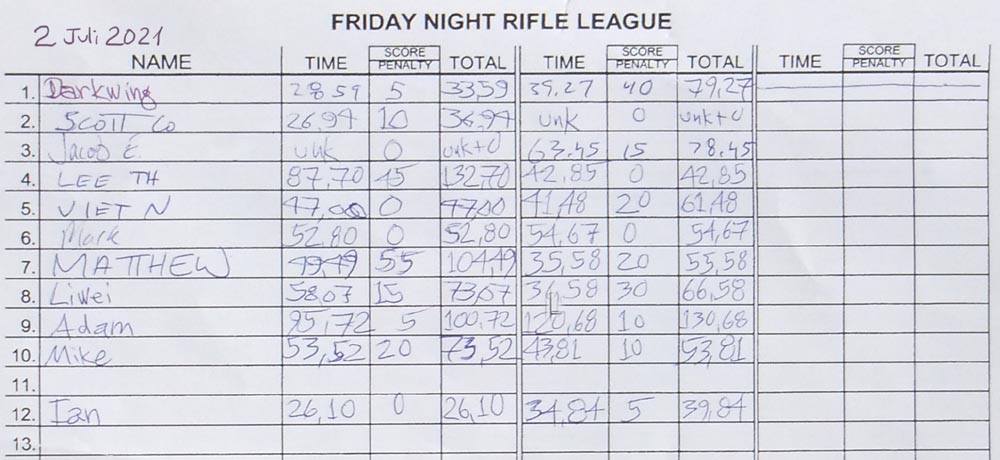 FRIDAY NIGHT RIFLE LEAGUE
2 Juli 2021
NAME TIME SCORE PENALTY TOTAL TIME SCORE PENALTY TOTAL TIME SCORE PENALTY TOTAL
1. Darkwing 28.59 5 33,59 39,27 40 79,27
2. SCOTT Co 26,94 10 36,94 unk 0 unk+0
3. Jacob E. unk 0 unk+0 63.45 15 78.45
4. LEE TH 87,70 45 132,70 42,85 0 42,85
5. VIET N 47,00 0 47,00 41,48 20 61,48
6. Mark 52,80 0 52,80 54,67 0 54,67
7. MATTHEW 49,49 55 104,49 35,58 20 55,58
8. Liwei 58,07 15 73,07 36,58 30 66,58
9. Adam 95,72 5 100,72 120,68 10 130,68
10. Mike 53,52 20 73,52 43,81 10 53,81
11.
12. Ian 26,10 0 26,10 34,84 5 39,84
13.